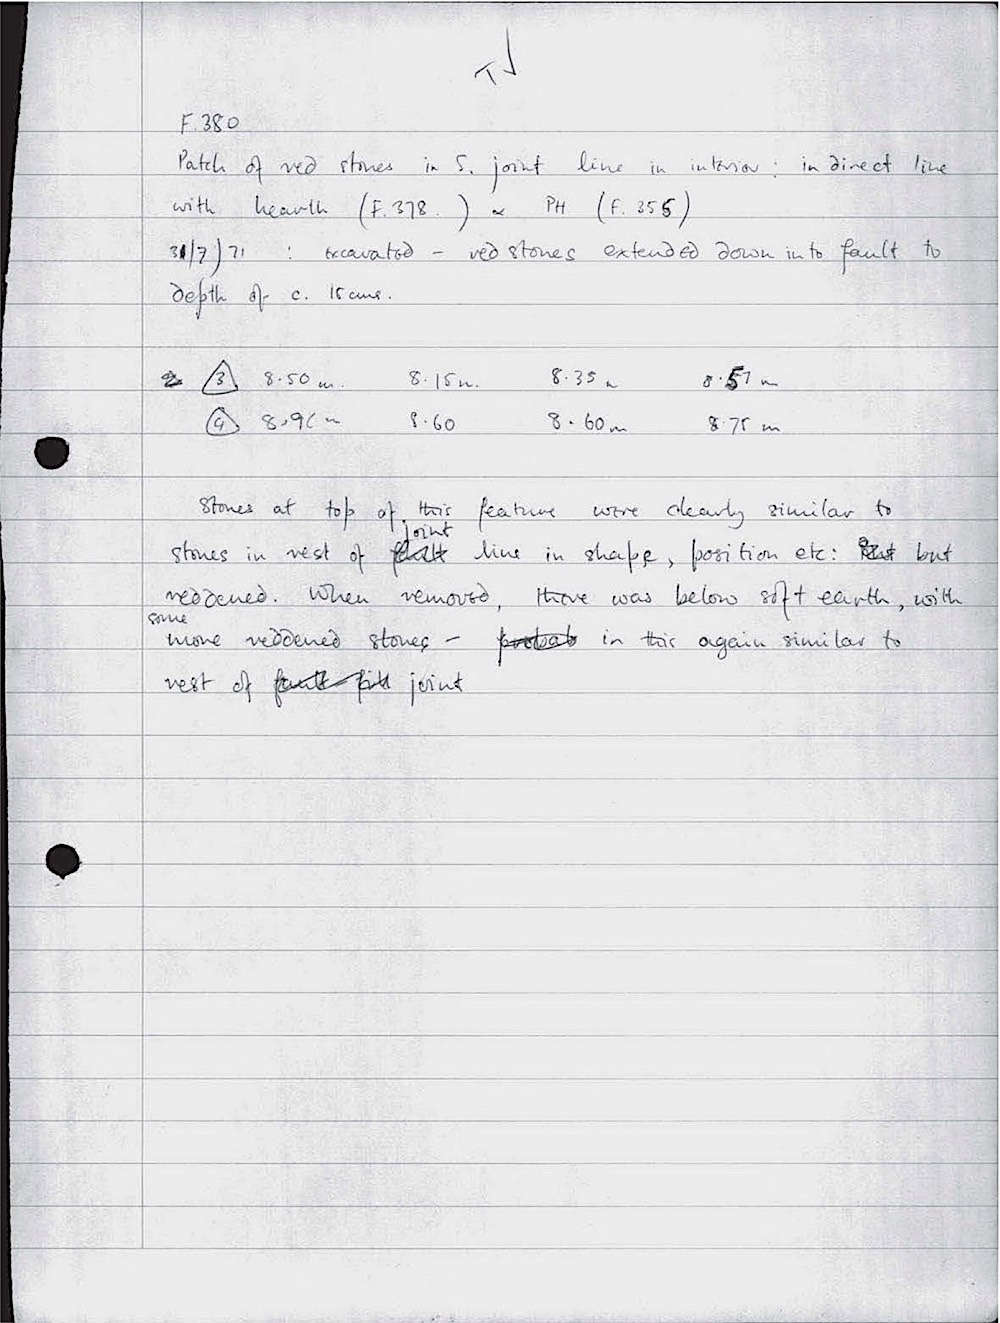 T✓
F.380
Patch of red stones in S. joint line in interior : in direct line
with hearth (F.378. ) ∝ PH (F. 355)
31/7/71 : excavated - red stones extended down into fault to
depth of c. 15 cms.
3 8.50 m. 8.15 m. 8.35 m 8.51 m
4 8.96 m 8.60 8.60 m 8.75 m
Stones at top of this feature were clearly similar to
joint
stones in rest of fault line in shape, position etc: but
reddened. When removed, there was below soft earth, with
some
more reddened stones - probab in this again similar to
rest of fault fill joint